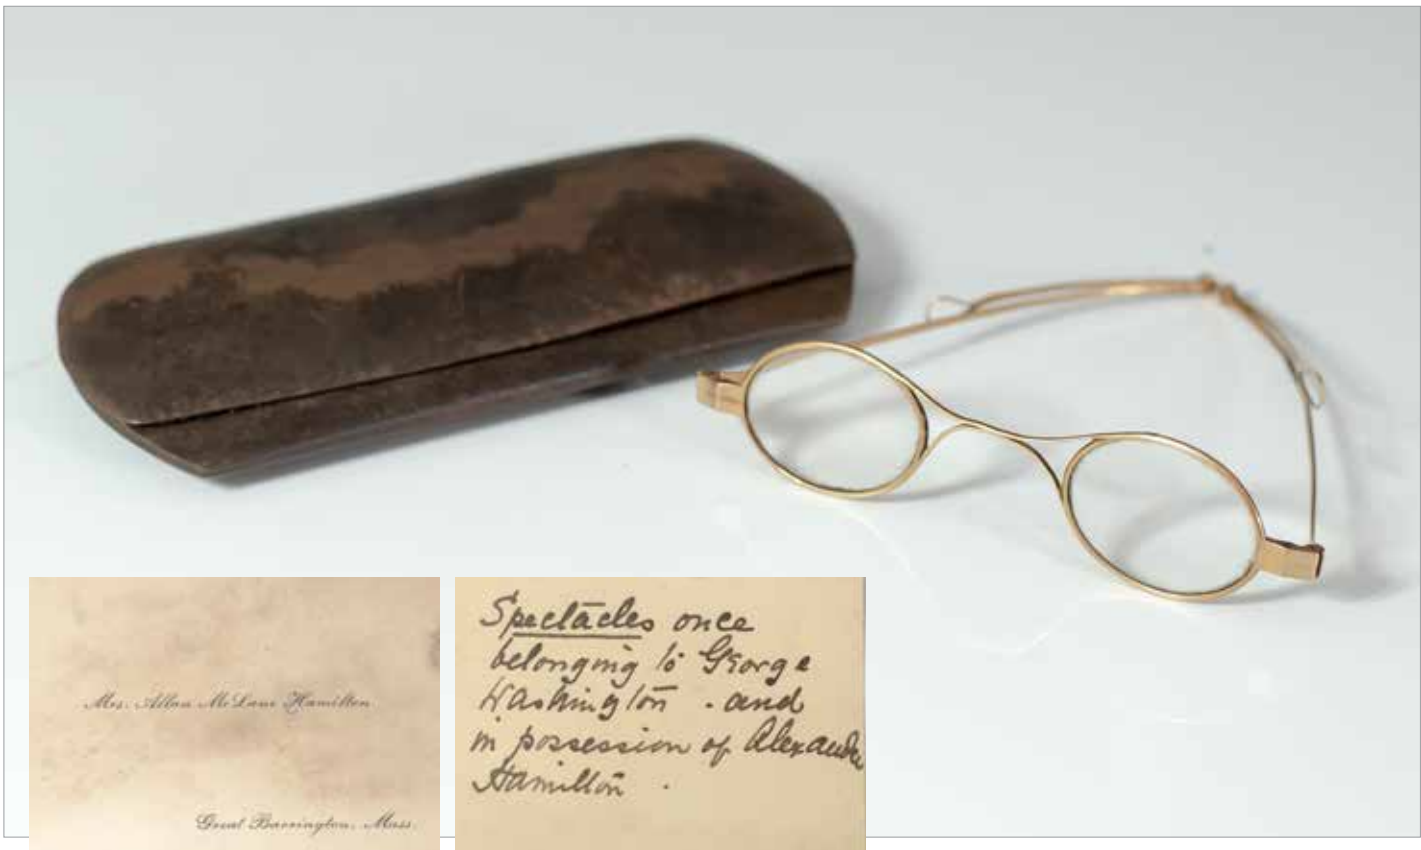 Mrs. Allan McLane Hamilton
Great Barrington, Mass.
Spectacles once
belonging to George
Washington . and
in possession of Alexander
Hamilton .